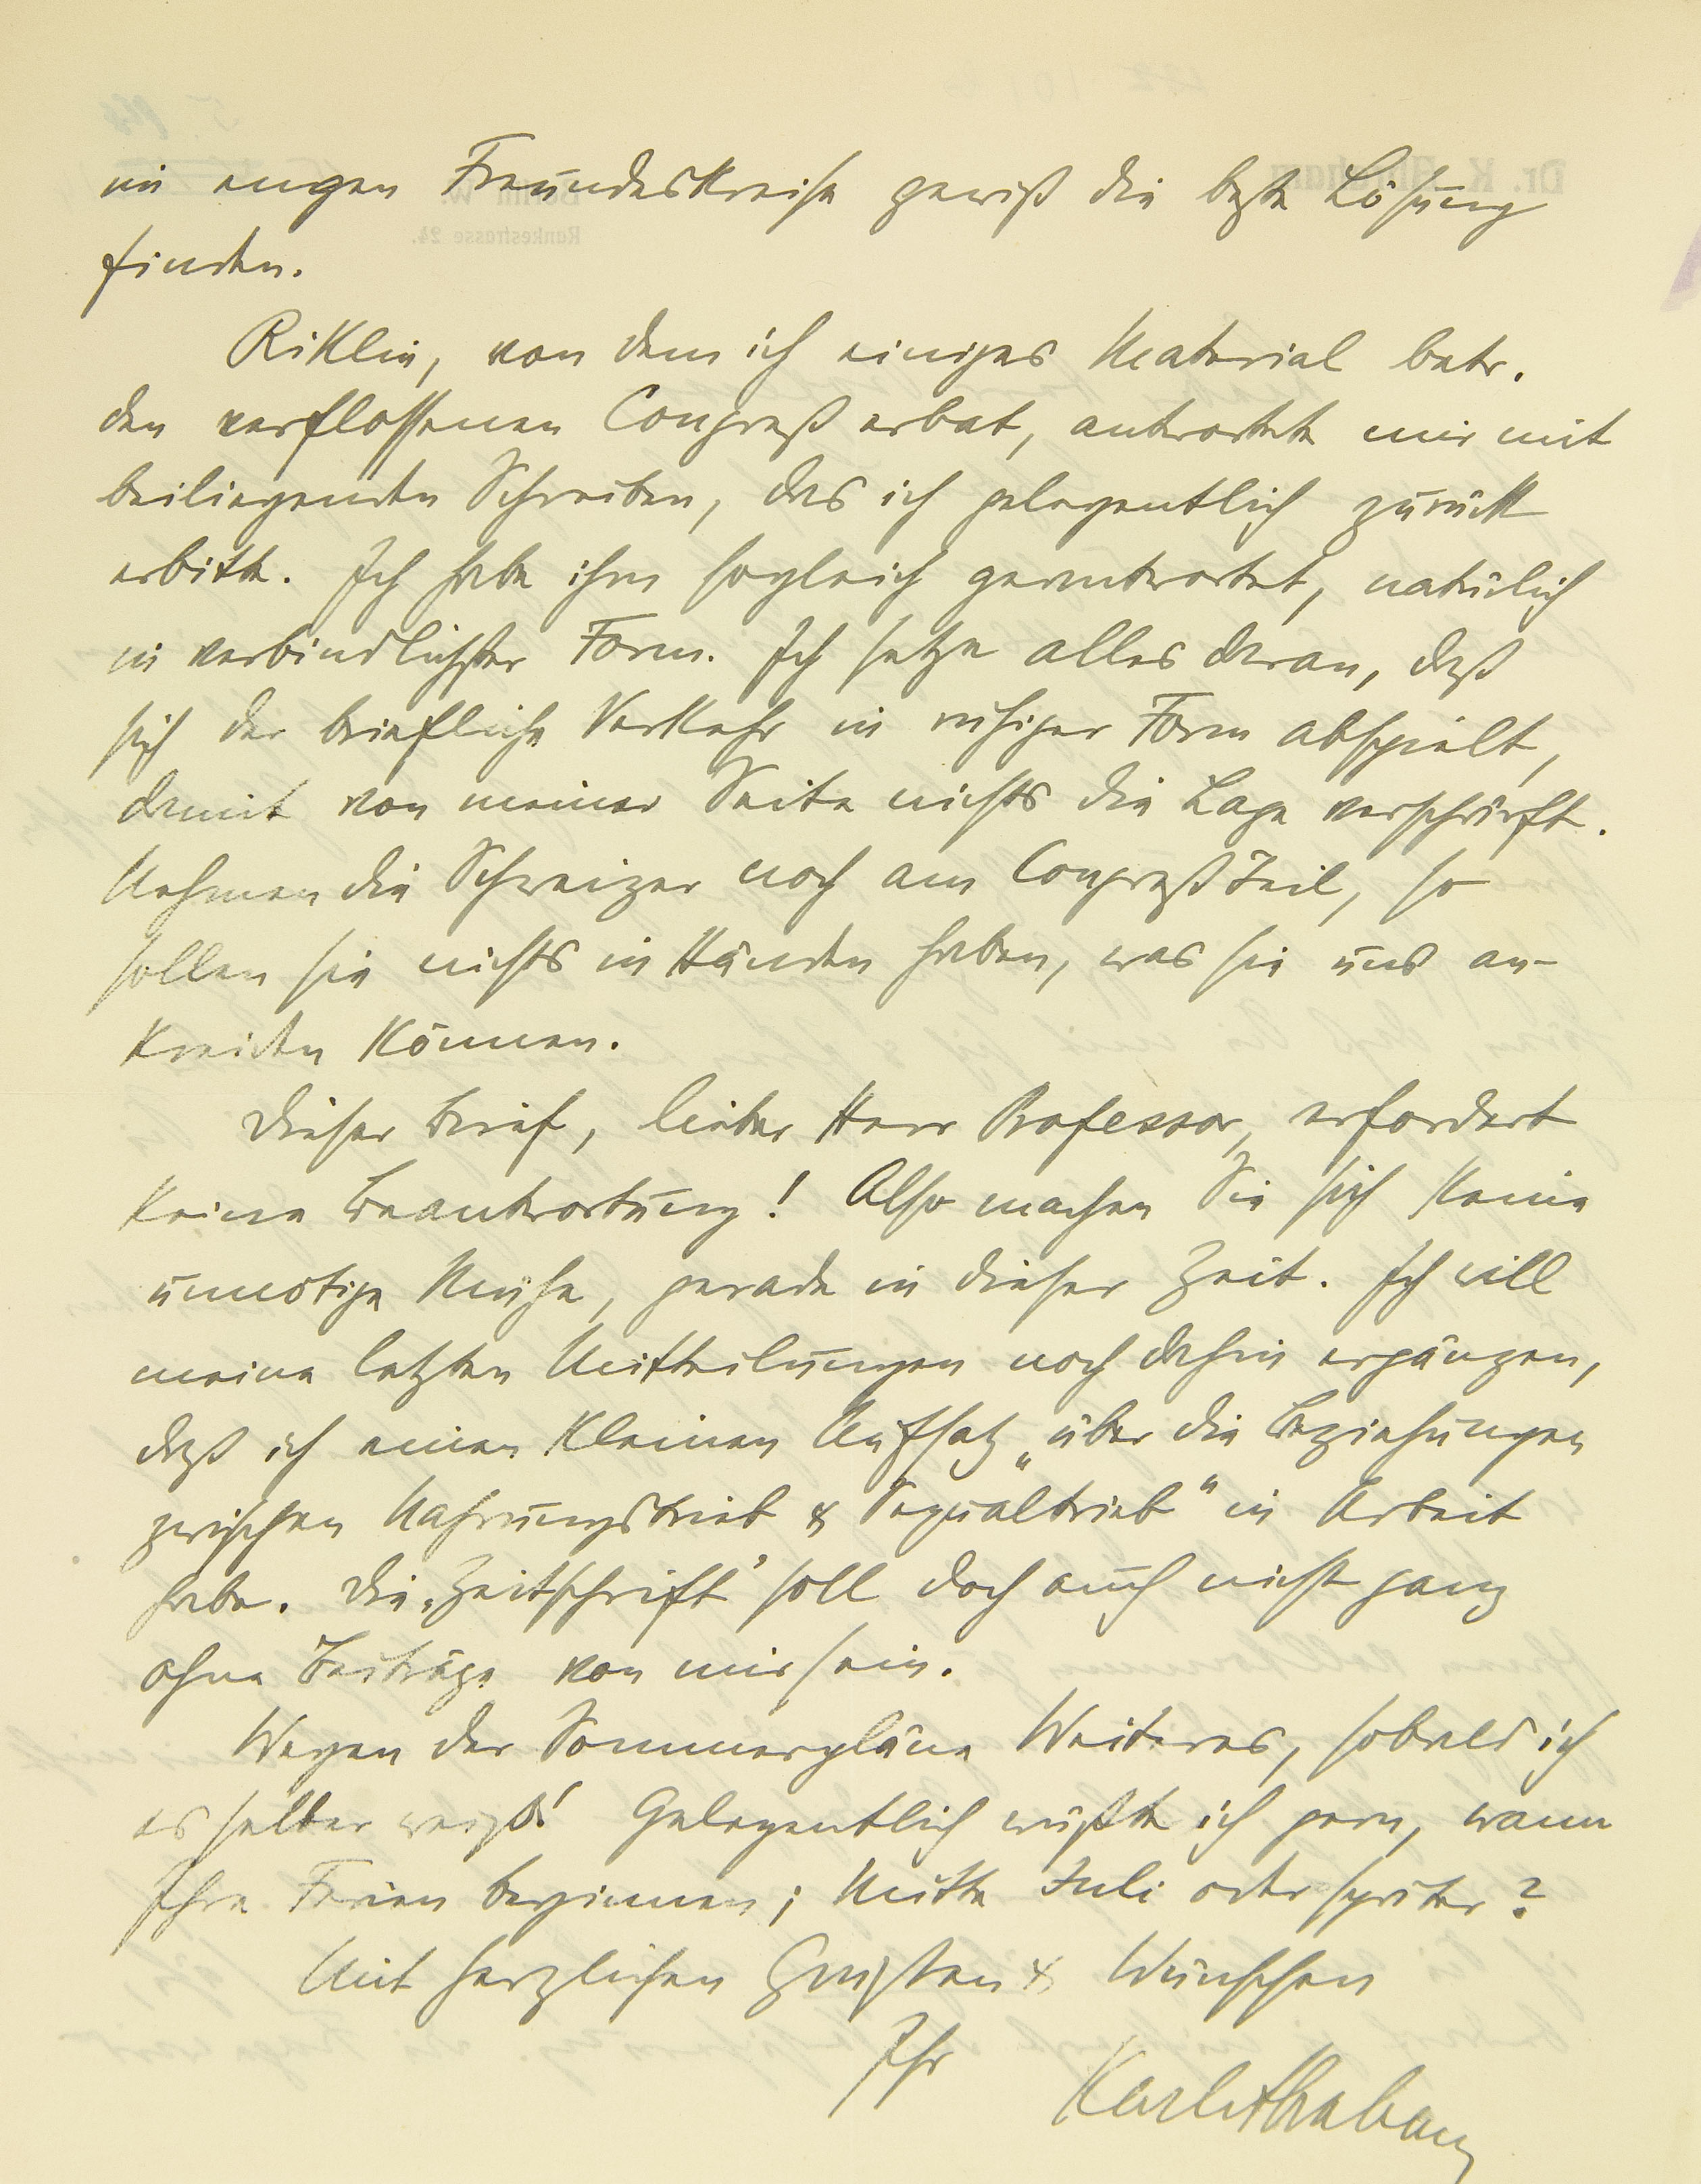 im engen Freundeskreise gewiß die beste Lösung
finden.
Riklin, von dem ich einiges Material betr.
den verflossenen Congreß erbat, antwortete mir mit
beiliegenden Schreiben, das ich gelegentlich zurück
erbitte. Ich habe ihm sogleich geantwortet, natürlich
in verbindlichster Form. Ich setze alles daran, daß
sich der briefliche Verkehr in ruhiger Form abspielt,
damit von meiner Seite nichts die Lage verschärft.
Nehmen die Schweizer noch am Congreß Teil, so
sollen sie nichts in Händen haben, was sie uns an-
kreiden können.
Dieser Brief, lieber Herr Professor, erfordert
keine Beantwortung! Also machen Sie sich keine
unnötige Mühe, gerade in dieser Zeit. Ich will
meine letzten Mitteilungen noch dahin ergänzen,
daß ich einen kleinen Aufsatz „über die Beziehungen
zwischen Nahrungstrieb & Sexualtrieb“ in Arbeit
habe. Die „Zeitschrift“ soll doch auch nicht ganz
ohne Beiträge von mir sein.
Wegen der Sommerpläne Weiteres, sobald ich
es selber weiß! Gelegentlich wüßte ich gern, wann
Ihre Ferien beginnen; Mitte Juli oder später?
Mit herzlichen Grüßen & Wünschen
Ihr Karl Abraham
Dr. K. Abraham
Berlin W.
Rankestrasse 24.